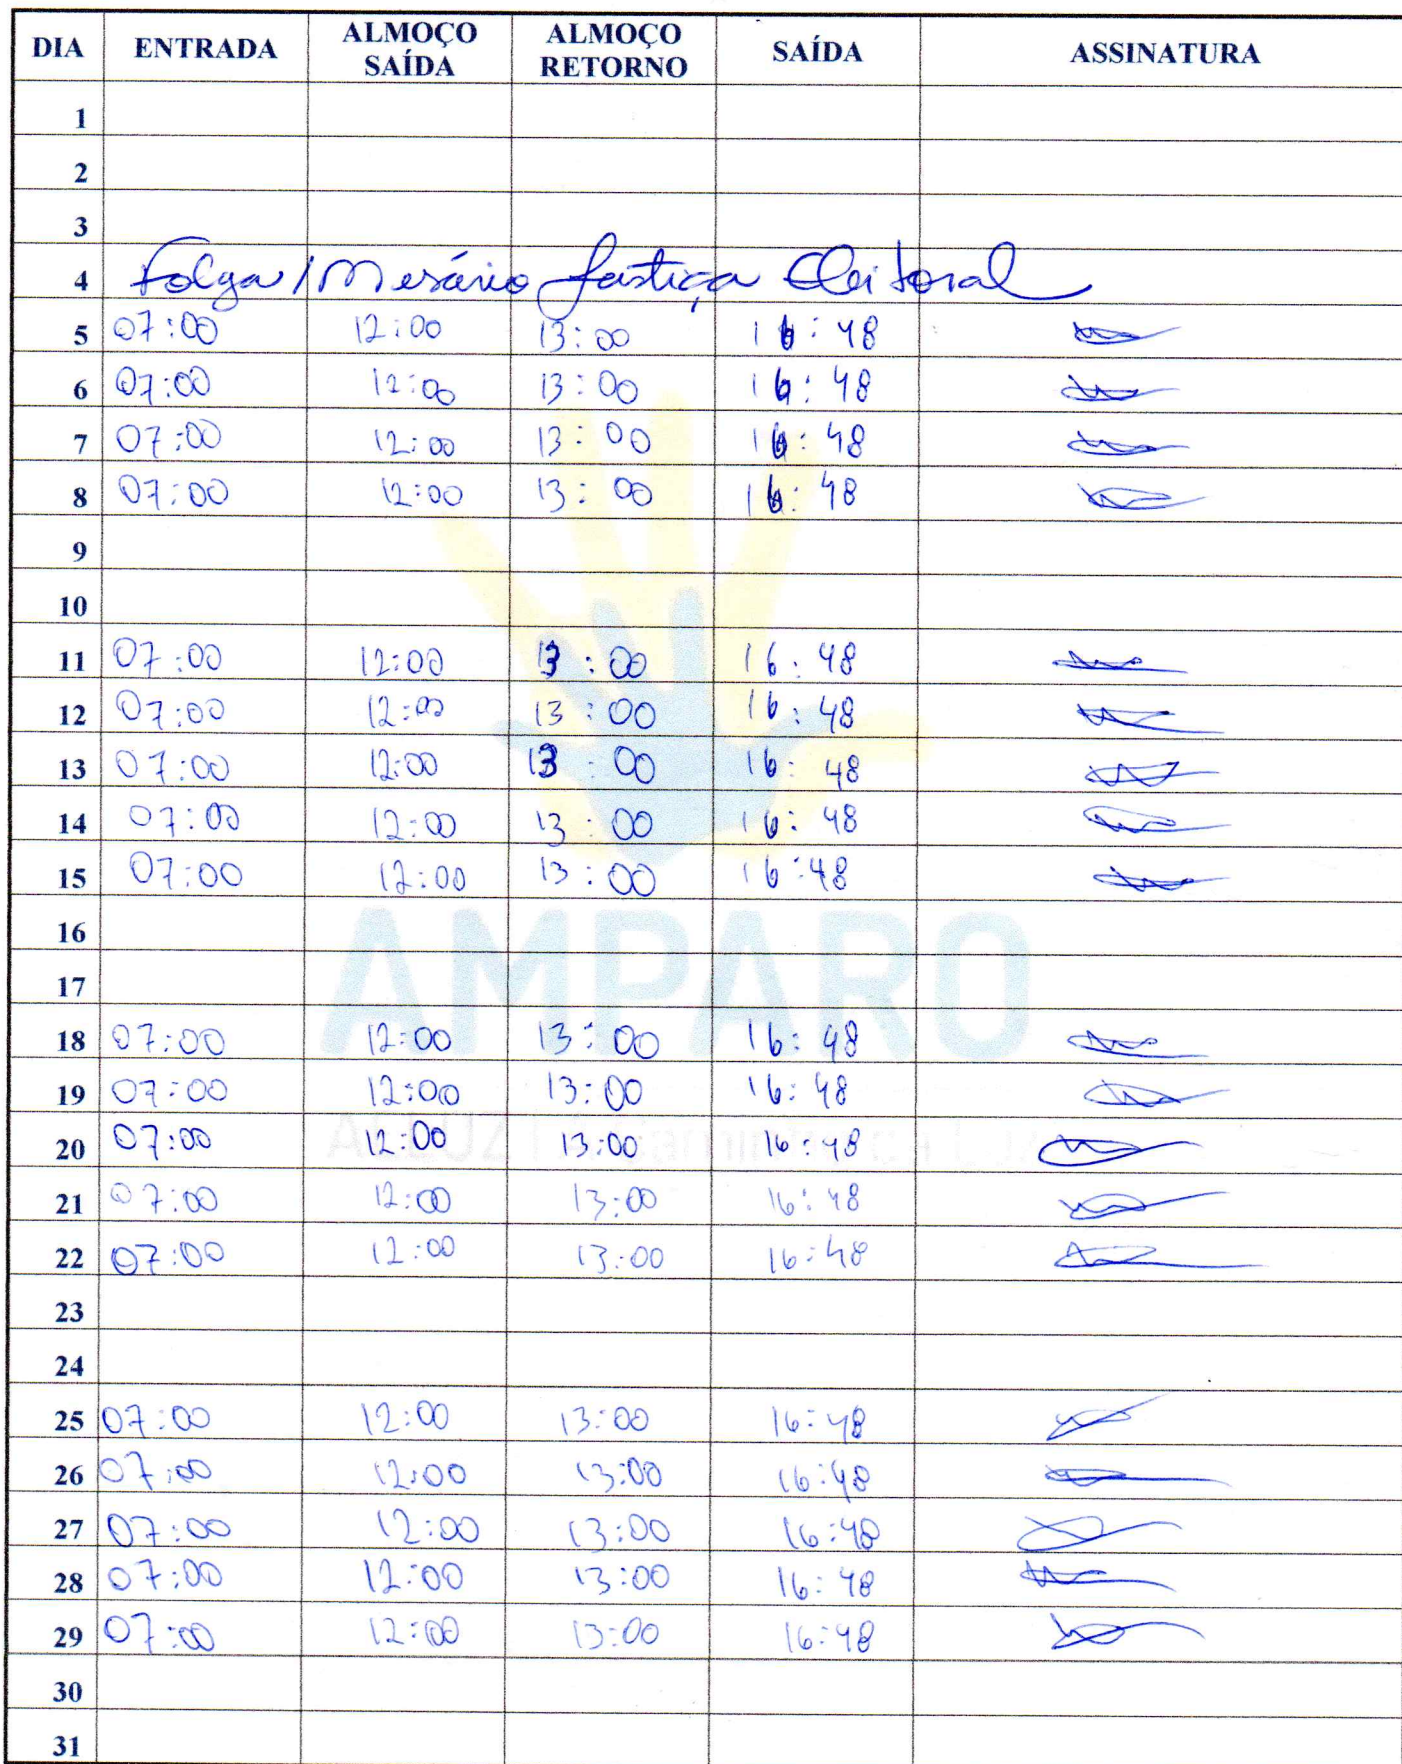 DIA ENTRADA ALMOÇO SAÍDA ALMOÇO RETORNO SAÍDA ASSINATURA
1
2
3
4 Folga/Mesário Justiça Eleitoral
5 07:00 12:00 13:00 16:48
6 07:00 12:00 13:00 16:48
7 07:00 12:00 13:00 16:48
8 07:00 12:00 13:00 16:48
9
10
11 07:00 12:00 13:00 16:48
12 07:00 12:00 13:00 16:48
13 07:00 12:00 13:00 16:48
14 07:00 12:00 13:00 16:48
15 07:00 12:00 13:00 16:48
16
AMPARO
17
18 07:00 12:00 13:00 16:48
19 07:00 12:00 13:00 16:48
20 07:00 12:00 13:00 16:48
21 07:00 12:00 13:00 16:48
22 07:00 12:00 13:00 16:48
23
24
25 07:00 12:00 13:00 16:48
26 07:00 12:00 13:00 16:48
27 07:00 12:00 13:00 16:48
28 07:00 12:00 13:00 16:48
29 07:00 12:00 13:00 16:48
30
31